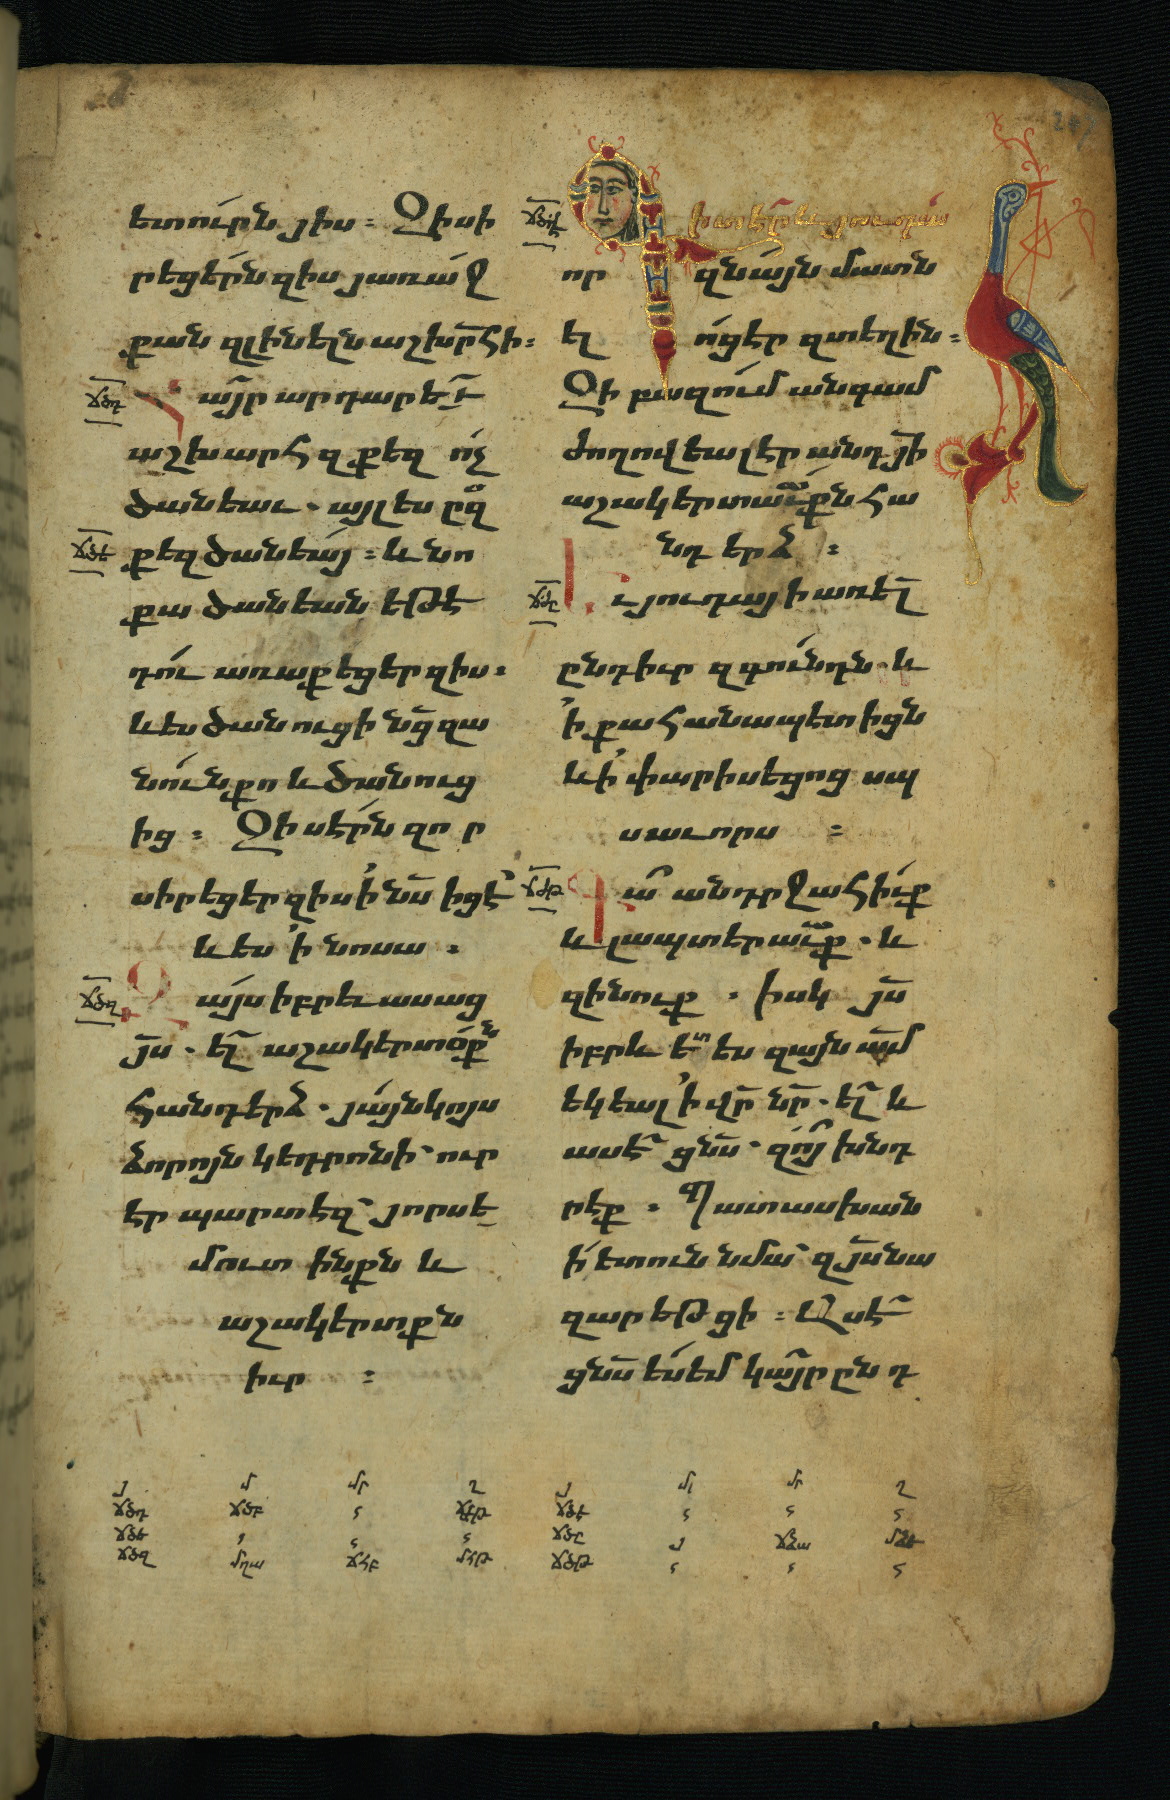 ետուրն յիս ։ Զի սի
րեցերն զիս յառաջ
քան զլինելն աշխրհի ։
ճծդ
այր արդար ե՛ւ
աշխարհ զքեզ ոչ
ծանեաւ . այլ ես
ճծե
քեզ ծանեայ ։ և նո
քա ծանեան եթէ
դու առաքեցեր զիս ։
և ես ծանուցի նց զա
նուն քո և ծանուց
ից ։ Զի սերն զոր
սիրեցեր զիս ի նս իցէ
և ես ի նոսա ։
ճծզ
այս իբրև ասաց
յս . ել աշակերտօքն
հանդերձ . յայնկոյս
ձորոյն կեդրոնի ՝ ուր
էր պարտէզ ՝ յորսե
մուտ ինքն և
աշակերտքն
իւր ։
ճծէ
որ զնայն մատն
եղ ոցէր զտեղին ։
Զի բազում անգամ
ժողովեալ էր անդ յի
աշակերտաւքն հա
նդերձ ։
ճծը
ւ յուդայի առել
ընդիւր զգունդն և
ի քահանայապետիցն
և ի փարիսեցոց սպ
սաւորս ։
ճծթ
ա անդր ջահիւք
և լապտերաւք . և
զինուք . իսկ յս
իբրև ետ ես զայն ամ
եկեալ ի վր նր . ել և
ասէ ցնս ՝ զո՞յ խնդ
րեք . Պատասխան
ի ետուն նմա ՝ զյսնա
զարեթցի ։ Ասէ
ցնս ես եմ կայր ընդ
յ մ մր ղ յ մ մր ղ
ճծդ ճծբ ճծէ
ճծե ճծը ճձա
ճծզ մղա ճհբ մհթ ճծթ